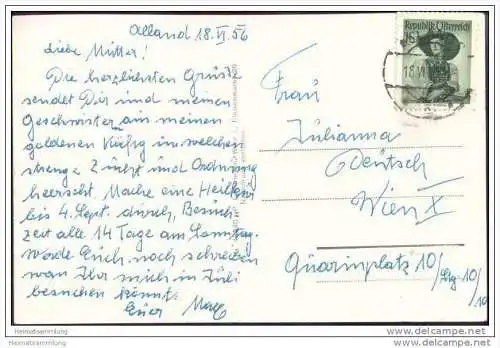 Alland 18.VI.56
Liebe Mutter!
Die herzlichsten Grüsse
sendet Dir und meinen
Geschwister aus meinen
goldenen Käfig in welchen
strenge Zucht und Ordnung
herrscht Mache eine Heilkur
bis 4. Sept. durch, Besuch
zeit alle 14 Tage am Samstag.
werde Euch noch schreiben
wan Ihr mich in Juli
besuchen könnt.
Euer
Frau
Julianna
Deutsch
Wien X
Quarinplatz 10/
Stg 10/
10
Republik Österreich
1S
18.VI
Heimatsammlung
Heimatsammlung.de
delcampe.net